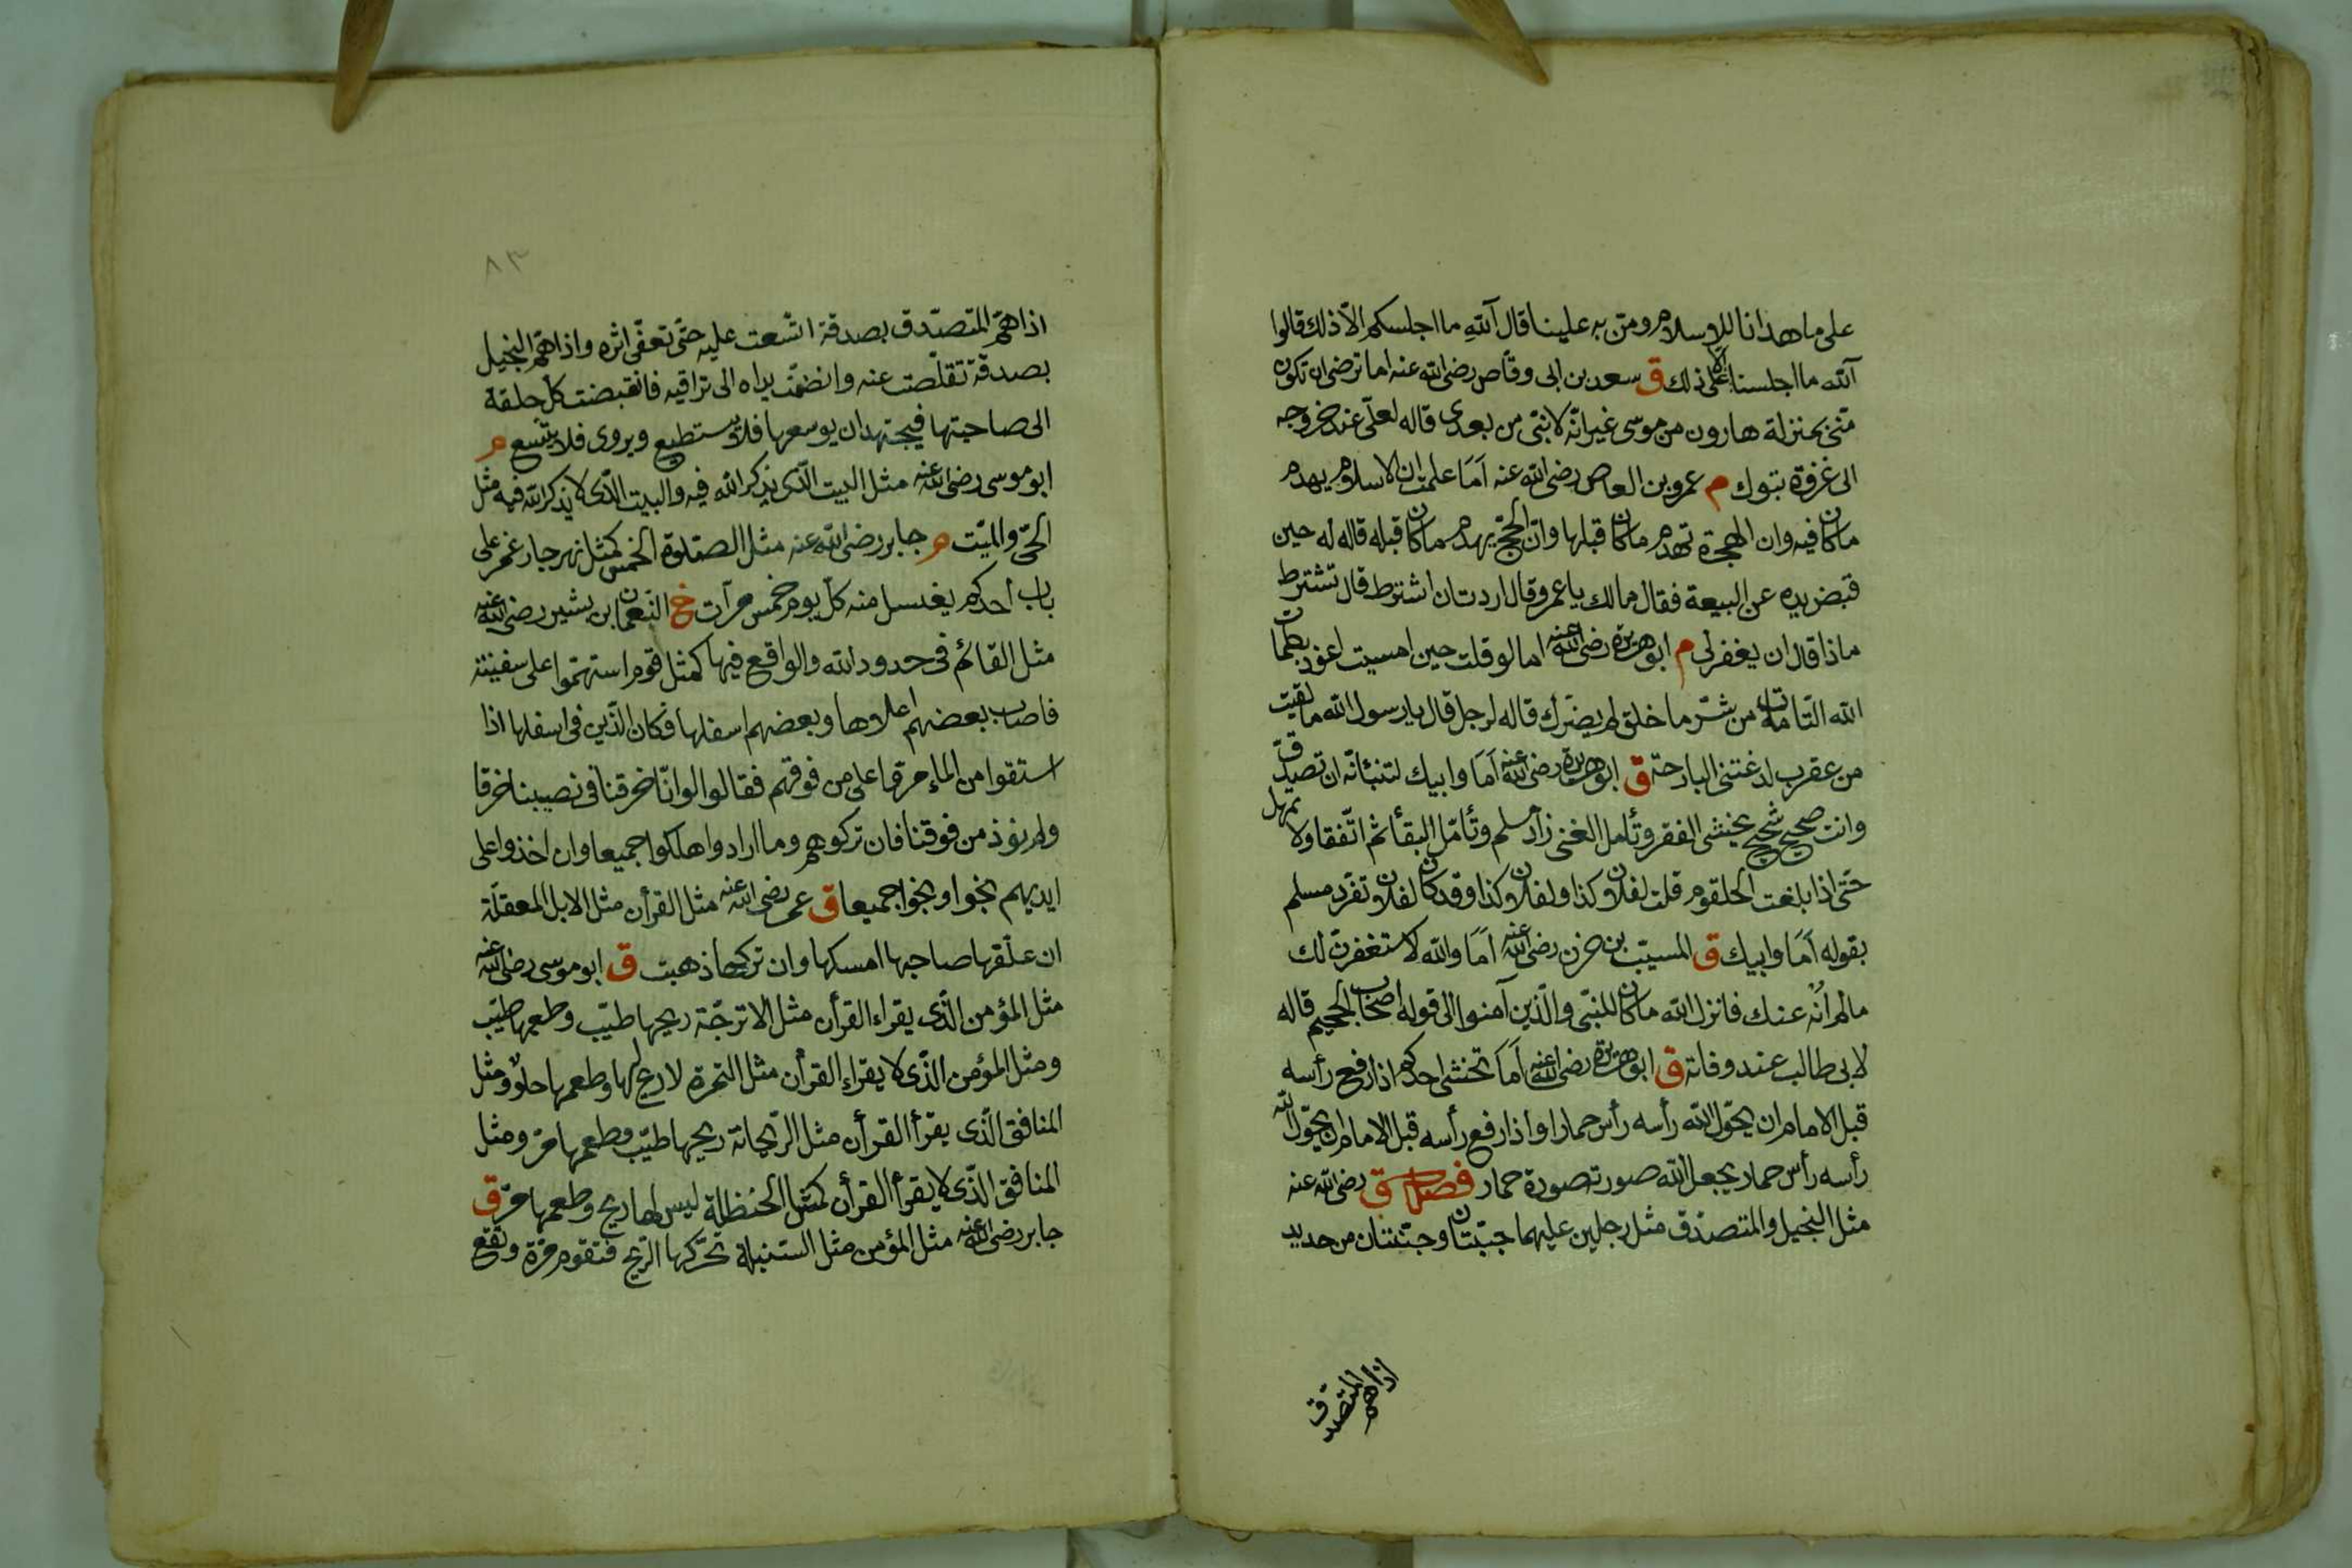 على ما هدانا للاسلام ومن به علينا قال آلله ما اجلسكم الا ذلك قالوا
آلله ما اجلسنا الا على ذلك ق سعد بن ابى وقاص رضى الله عنه اما ترضى ان تكون
منى بمنزلة هارون من موسى غير انه لا نبى من بعدى قاله لعلى عند خروجه
الى غزوة تبوك م عمرو بن العاص رضى الله عنه اما علمت ان الاسلام يهدم
ما كان فيه وان الهجرة تهدم ما كان قبلها وان الحج يهدم ما كان قبله قاله له حين
قبض يده عن البيعة فقال مالك يا عمرو قال اردت ان اشترط قال تشترط
ماذا قال ان يغفر لى م ابو هريرة رضى الله عنه اما لو قلت حين امسيت اعوذ بكلمات
الله التامات من شر ما خلق لم يضرك قاله لرجل قال يا رسول الله ما لقيت
من عقرب لدغتنى البارحة ق ابو هريرة رضى الله عنه اما وابيك لتنبأنه ان تصدق
وانت صحيح شحيح تخشى الفقر وتأمل الغنى زاد مسلم وتأمل البقأ ثم اتفقا ولا تمهل
حتى اذا بلغت الحلقوم قلت لفلان كذا ولفلان كذا وقد كان لفلان تفرد مسلم
بقوله اما وابيك ق المسيب بن حزن رضى الله عنه اما والله لاستغفرن لك
مالم أنه عنك فانزل الله ما كان للنبى والذين آمنوا الى قوله اصحاب الجحيم قاله
لابى طالب عند وفاته ق ابو هريرة رضى الله عنه اما تخشى احدكم اذا رفع رأسه
قبل الامام ان يحول الله رأسه رأس حمار او اذا رفع رأسه قبل الامام ان يحول الله
رأسه رأس حمار يجعل الله صورته صورة حمار فصل ق رضى الله عنه
مثل البخيل والمتصدق مثل رجلين عليهما جبتان وجنتان من حديد
اذا هم المتصدق
٨٣
اذا هم المتصدق بصدقة اتسعت عليه حتى تعفى اثره واذا هم البخيل
بصدقة تقلصت عنه وانضمت يداه الى تراقيه فانقبضت كل حلقة
الى صاحبتها فيجتهد ان يوسعها فلا يستطيع ويروى فلا يتسع م
ابو موسى رضى الله عنه مثل البيت الذى يذكر الله فيه والبيت الذى لا يذكر الله فيه مثل
الحى والميت م جابر رضى الله عنه مثل الصلوة الخمس كمثل نهر جار غمر على
باب احدكم يغتسل منه كل يوم خمس مرآت خ النعمان بن بشير رضى الله عنه
مثل القائم فى حدود الله والواقع فيها كمثل قوم استهموا على سفينة
فاصاب بعضهم اعلاها وبعضهم اسفلها فكان الذين فى اسفلها اذا
استقوا من الماء مروا على من فوقهم فقالوا لو انا خرقنا فى نصيبنا خرقا
ولم نوذ من فوقنا فان تركوهم وما ارادوا هلكوا جميعا وان اخذوا على
ايديهم نجوا ونجوا جميعا ق عمر رضى الله عنه مثل القرأن مثل الابل المعقلة
ان علقها صاحبها امسكها وان تركها ذهبت ق ابو موسى رضى الله عنه
مثل المؤمن الذى يقراء القرأن مثل الاترجة ريحها طيب وطعمها طيب
ومثل المؤمن الذى لا يقراء القرأن مثل التمرة لا ريح لها وطعمها حلو ومثل
المنافق الذى يقرأ القرأن مثل الريحانة ريحها طيب وطعمها مر ومثل
المنافق الذى لا يقرأ القرأن كمثل الحنظلة ليس لها ريح وطعمها مر ق
جابر رضى الله عنه مثل المؤمن مثل السنبلة تحركها الريح فتقوم مرة وتقع